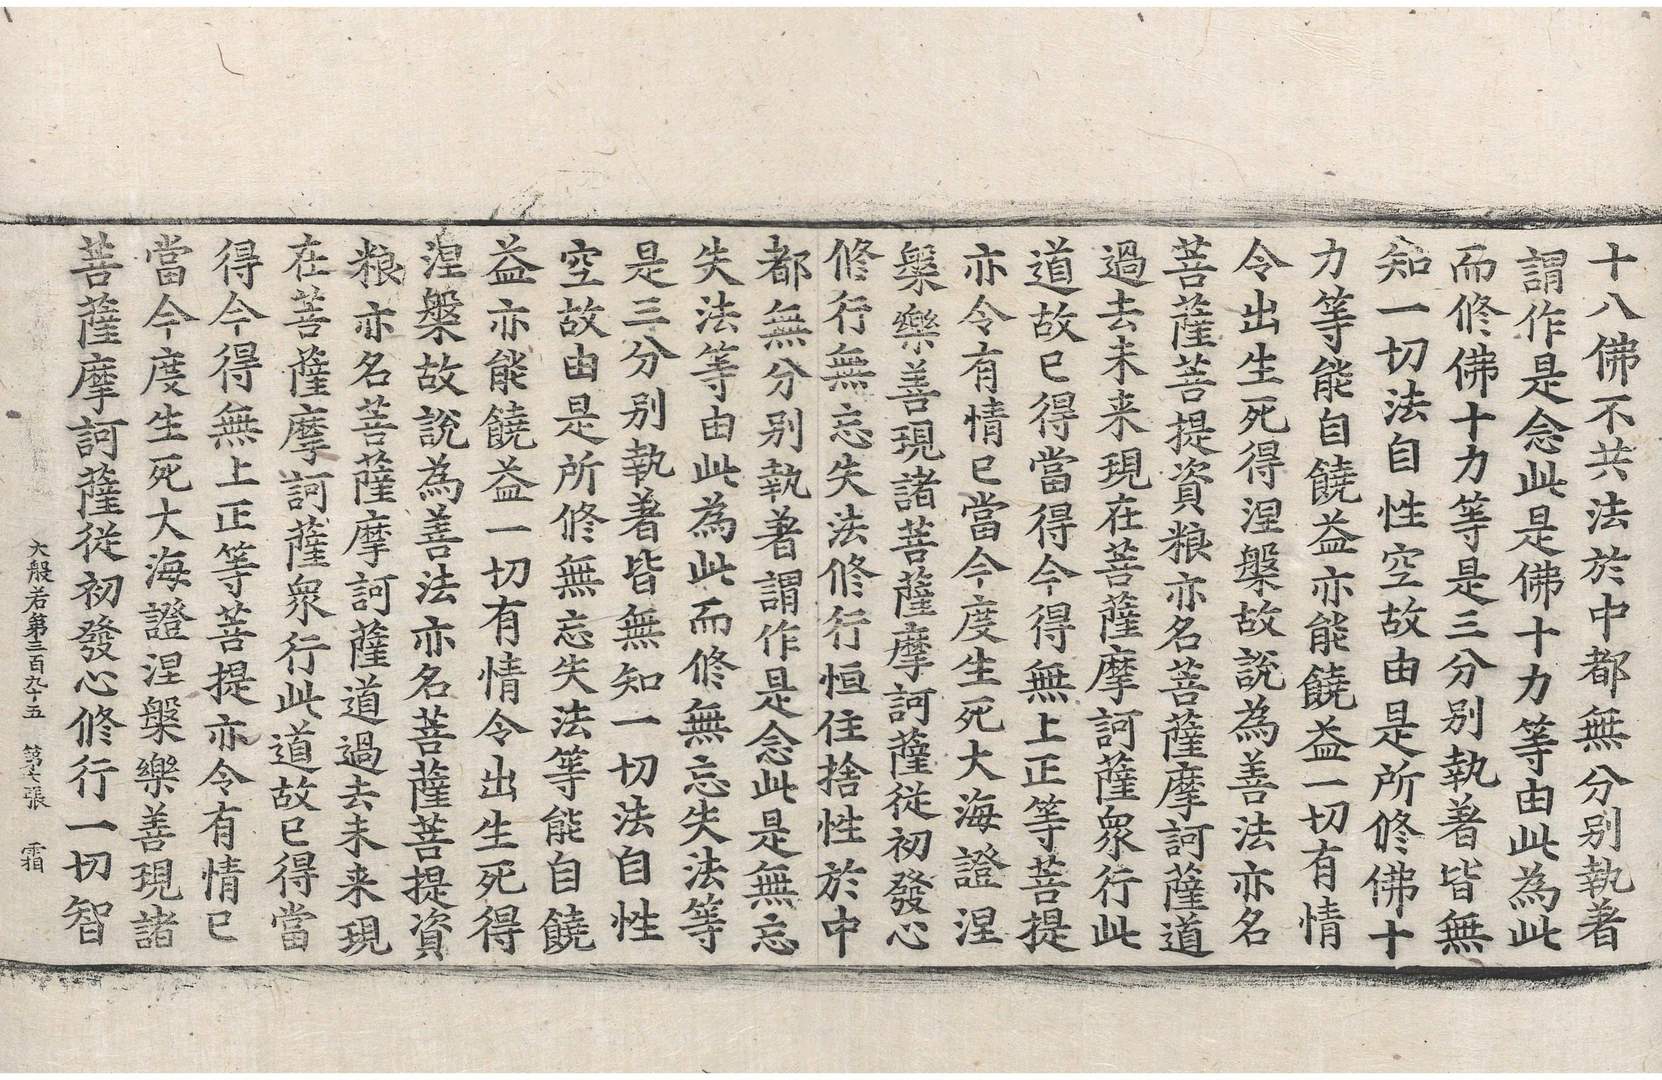 十八佛不共法於中都無分別執著
謂作是念此是佛十力等由此為此
而修佛十力等是三分別執著皆無
知一切法自性空故由是所修佛十
力等能自饒益亦能饒益一切有情
令出生死得涅槃故說為善法亦名
菩薩菩提資粮亦名菩薩摩訶薩道
過去未来現在菩薩摩訶薩眾行此
道故已得當得今得無上正等菩提
亦令有情已當今度生死大海證涅
槃樂善現諸菩薩摩訶薩從初發心
修行無忘失法修行恒住捨性於中
都無分別執著謂作是念此是無忘
失法等由此為此而修無忘失法等
是三分別執著皆無知一切法自性
空故由是所修無忘失法等能自饒
益亦能饒益一切有情令出生死得
涅槃故說為善法亦名菩薩菩提資
粮亦名菩薩摩訶薩道過去未来現
在菩薩摩訶薩眾行此道故已得當
得今得無上正等菩提亦令有情已
當今度生死大海證涅槃樂善現諸
菩薩摩訶薩從初發心修行一切智
大般若第三百九十五 第七張 霜